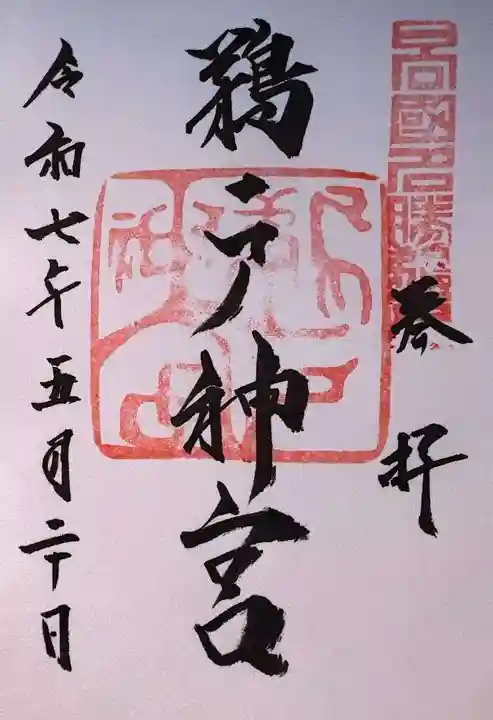 日向國名勝鵜戸
奉拝
鵜戸神宮
令和七年五月二十日